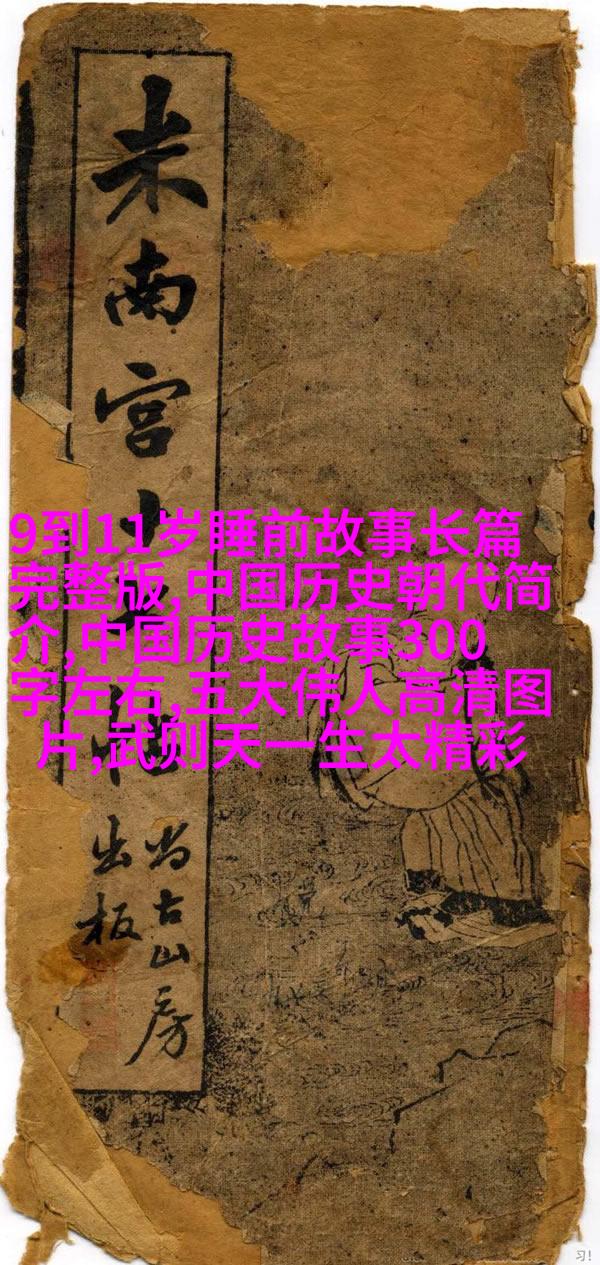 米南宫十
尚古山房
出板
9到11岁睡前故事长篇
完整版,中国历史朝代简
介,中国历史故事300
字左右,五大伟人高清图
片,武则天一生太精彩
习!